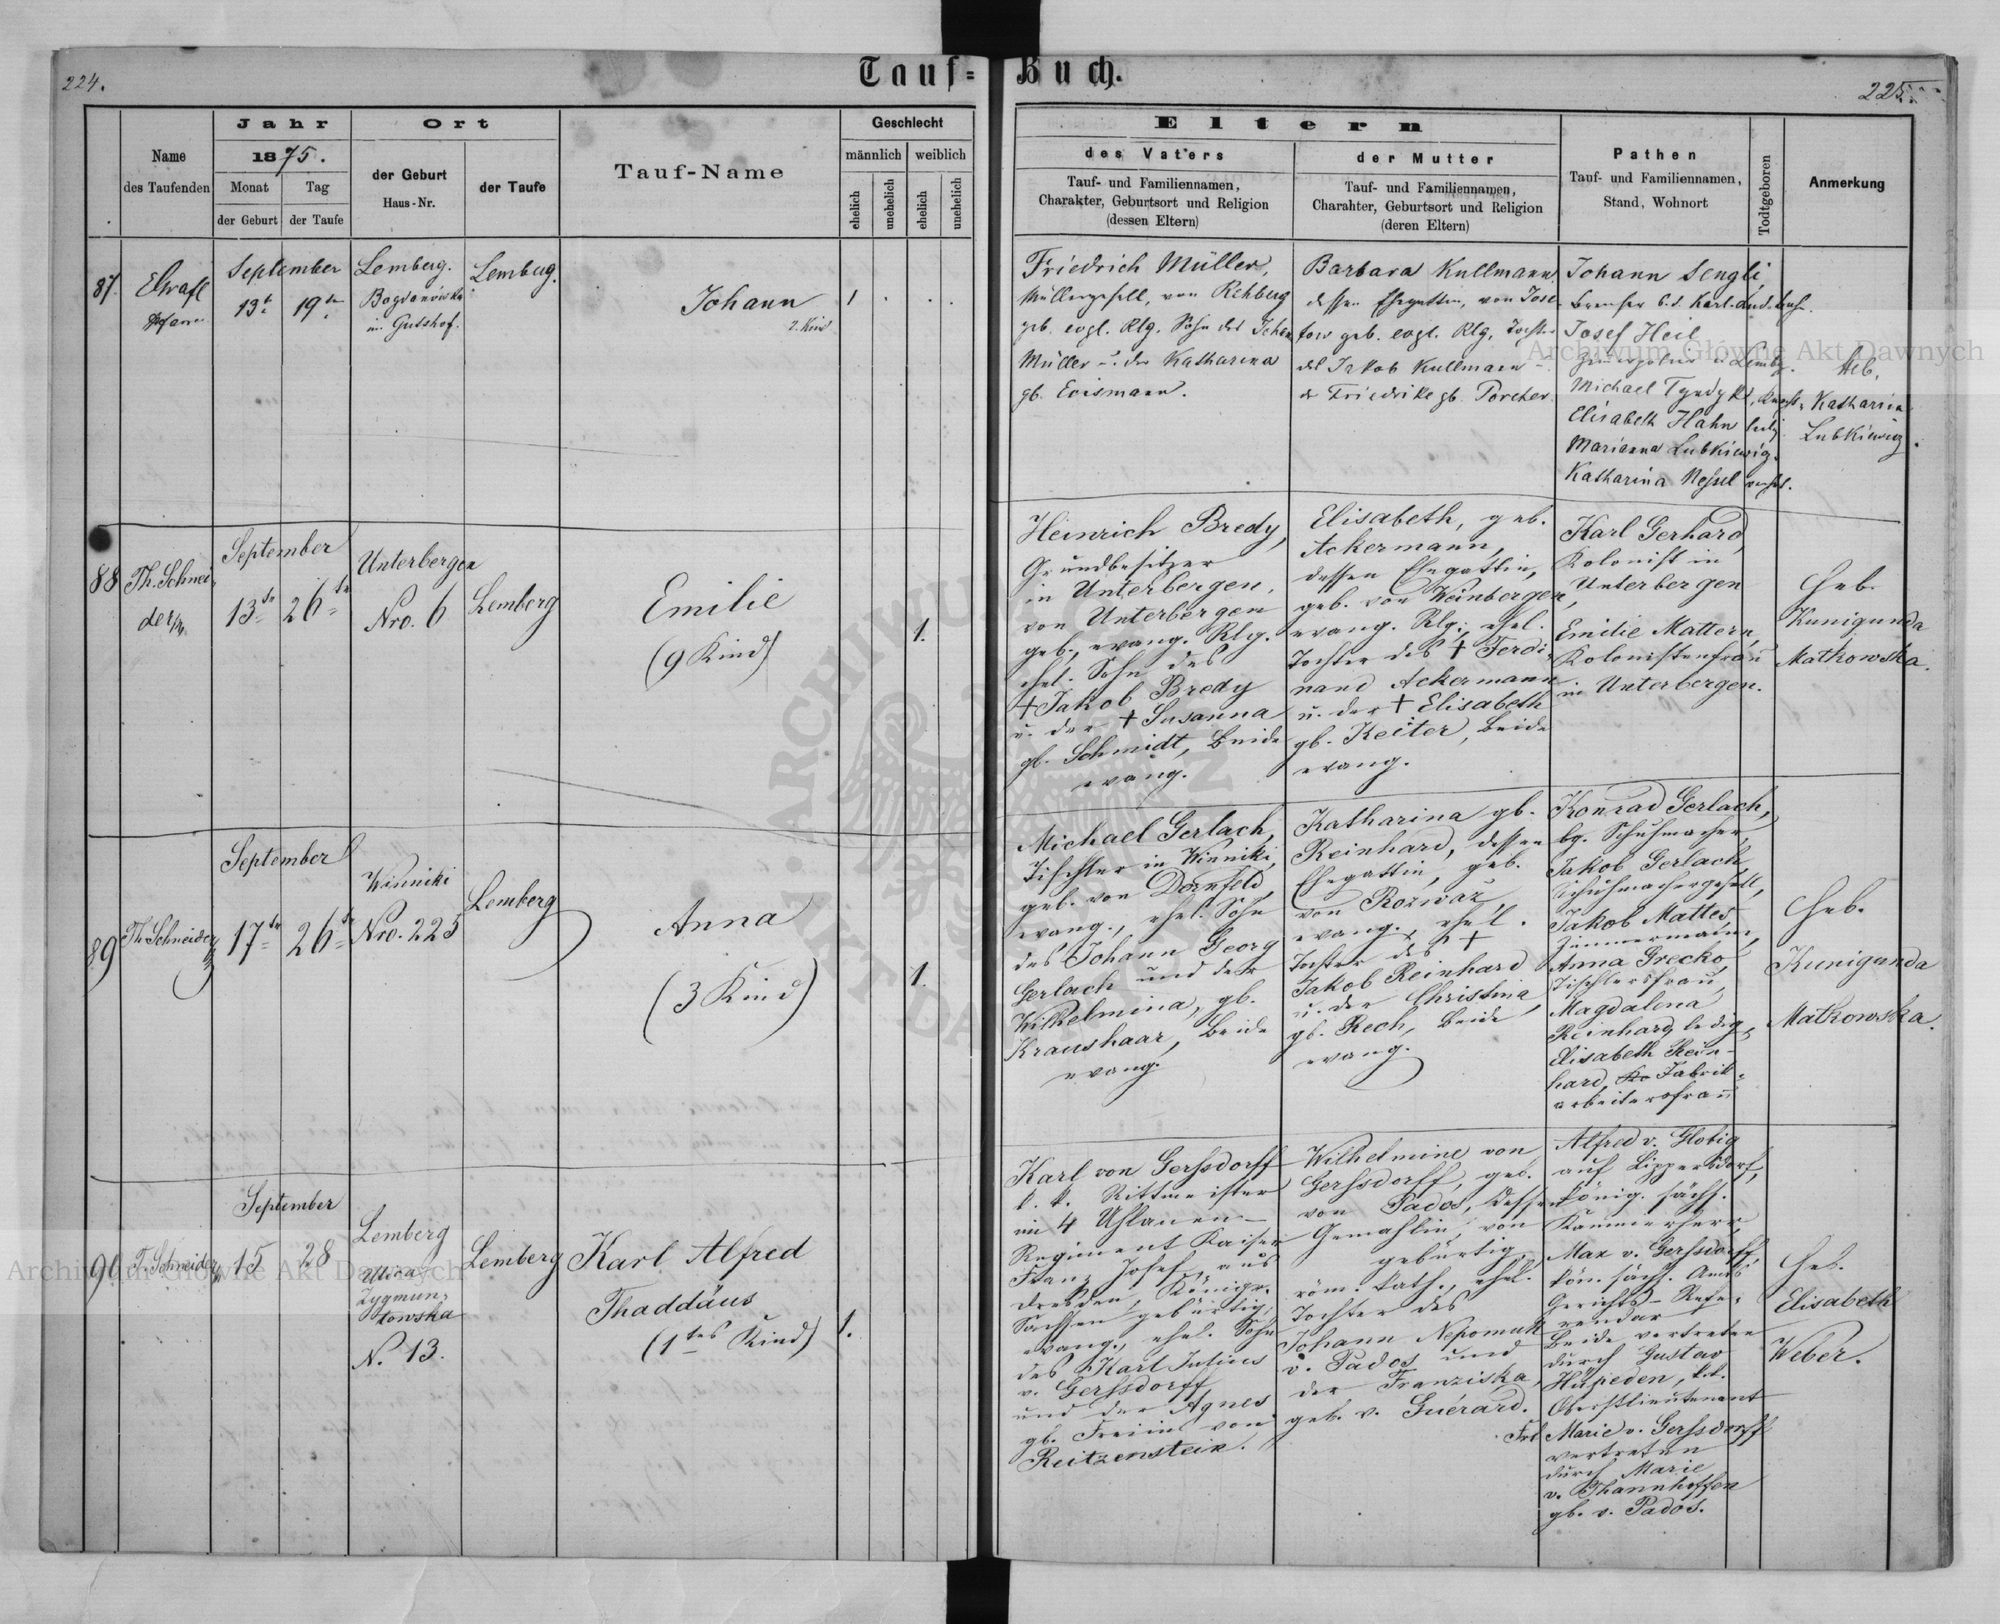 224.
Tauf-Buch.
225.
Jahr
1875.
Ort
Geschlecht
Name
des Taufenden
Monat
Tag
der Geburt
der Taufe
der Geburt
Haus-Nr.
der Taufe
Tauf-Name
männlich
weiblich
ehelich
unehelich
ehelich
unehelich
Eltern
des Vaters
Tauf- und Familiennamen,
Charakter, Geburtsort und Religion
(dessen Eltern)
der Mutter
Tauf- und Familiennamen,
Charahter, Geburtsort und Religion
(deren Eltern)
Pathen
Tauf- und Familiennamen,
Stand, Wohnort
Todtgeboren
Anmerkung
87.
September
13t
19te
Lemberg.
im Gutshof.
Lemberg.
Johann
2. Kind
1
Friedrich Müller,
Müllergesell, von Rehberg
geb. evgl. Rlg. Sohn des Johan
Müller u. der Katharina
gb. Erismann.
Barbara Kullmann
dessen Ehegattin, von Jose-
fow geb. evgl. Rlg. Tochter
des Jakob Kullmann u.
d. Friedrike gb. Porcher.
Johann Sengli,
Bremser b. d. Karl. Lud. Bahn.
Josef Heil
Michael Tyndyk,
Elisabeth Hahn ledig
Marianna Lubkiewig.
Katharina Nessel
Heb.
Katharina
Lubkiewicz.
88
Th. Schnei-
der
September
13te
26te
Unterbergen
Nro. 6
Lemberg
Emilie
(9 Kind)
1.
Heinrich Bredy,
Grundbesitzer
in Unterbergen,
von Unterbergen
geb., evang. Rlg.
ehel. Sohn des
† Jakob Bredy
u. der † Susanna
gb. Schmidt, beide
evang.
Elisabeth, geb.
Ackermann,
dessen Ehegattin,
geb. von Weinbergen,
evang. Rlg., ehel.
Tochter des † Ferdi-
nand Ackermann
u. der † Elisabeth
gb. Keiter, beide
evang.
Karl Gerhard,
Kolonist in
Unterbergen
Emilie Mattern,
Kolonistenfrau
in Unterbergen.
Heb.
Kunigunda
Matkowska.
89
Th. Schneider
September
17te
26te
Winniki
Nro. 225
Lemberg
Anna
(3 Kind)
1.
Michael Gerlach,
Tischler in Winniki,
geb. von Dornfeld,
evang., ehel. Sohn
des Johann Georg
Gerlach und der
Wilhelmina, gb.
Kraushaar, beide
evang.
Katharina gb.
Reinhard, dessen
Ehegattin, geb.
von Rozwar,
evang., ehel.
Tochter des †
Jakob Reinhard
u. der Christina,
gb. Rech, beide
evang.
Konrad Gerlach,
bg. Schuhmacher,
Jakob Gerlach,
Schuhmachergesell,
Jakob Mattes,
Zimmermann,
Anna Grecko,
Tischlersfrau,
Magdalena
Reinhard, ledig,
Elisabeth Rein-
hard, Fabrik-
arbeitersfrau
Heb.
Kunigunda
Matkowska.
90
T. Schneider
September
15
28
Lemberg
Ulica
Zygmun-
towska
N. 13.
Lemberg
Karl Alfred
Thaddäus
(1tes Kind)
1.
Karl von Gerssdorff
k. k. Rittmeister
im 4 Uhlanen-
Regiment Kaiser
Franz Josef, aus
Dresden, Königr.
Sachsen gebürtig,
evang., ehel. Sohn
des Karl Julius
v. Gerssdorff
und der Agnes
gb. Freiin von
Reitzenstein.
Wilhelmine von
Gerssdorff, geb.
von Pados, dessen
Gemahlin, von
gebürtig,
röm. kath., ehel.
Tochter des
Johann Nepomuk
v. Pados und
der Franziska,
geb. v. Guérard.
Alfred v. Globig
auf Lippersdorf,
könig. sächs.
Kammerherr
Max v. Gerssdorff,
kön. sächs. Amts
Gerichts-Refe-
rendar
Beide vertreten
durch Gustav
k. k.
Oberstlieutenant
Frl Marie v. Gerssdorff
vertreten
durch Marie
v. Thannhoffen
gb. v. Pados.
Heb.
Elisabeth
Weber.
Archiwum Główne Akt Dawnych
Archiwum Główne Akt Dawnych